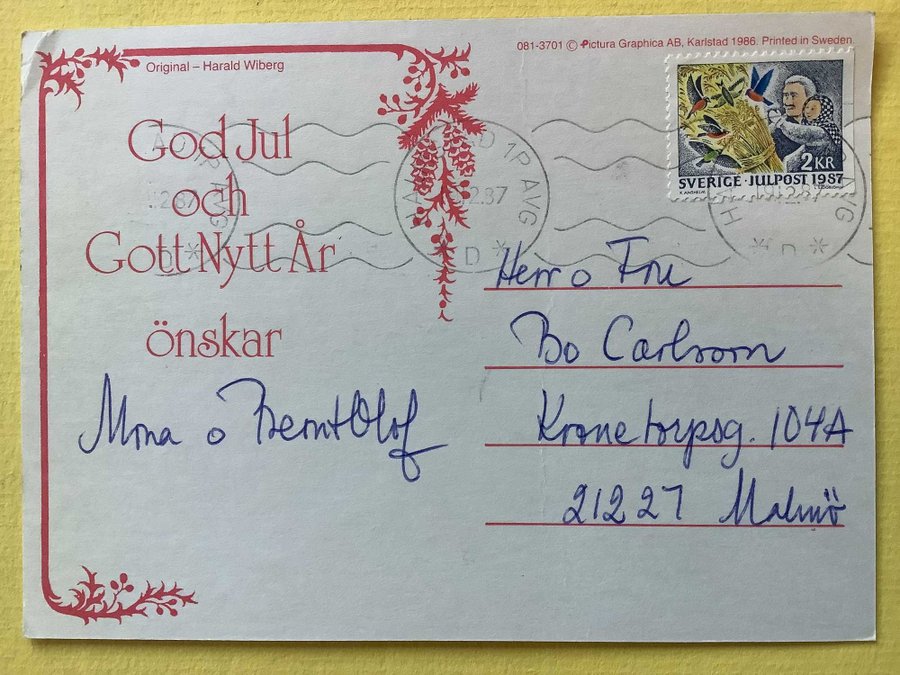 081-3701 © Pictura Graphica AB, Karlstad 1986. Printed in Sweden
Original – Harald Wiberg
God Jul
och
Gott Nytt År
önskar
Mona o BerntOlof
2 KR
SVERIGE · JULPOST 1987
1P AVG
2.87
D *
Herr o Fru
Bo
Kronetorpsg. 104A
21227 Malmö